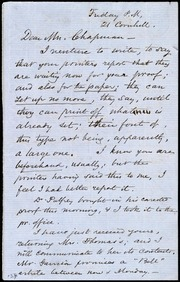 Friday P.M.
21 Cornhill.
Dear Mrs. Chapman —
I venture to write, to say
that your printers report that they
are waiting now for your proof;
and also for the paper; they can
set up no more, they say, until
they can print off what is
already set; their fonts of
this type not being, apparently,
a large one. I know you are
beforehand, usually, but the
printer having said this to me, I
feel I had better report it.
Dr Palfrey bought in his
proof this morning, & I took it to the
pr. office.
I have just received yours,
returning Mrs. Thomas's, and I
will communicate to her its contents.
Mr. Garrison promises a
article between now & Monday. —